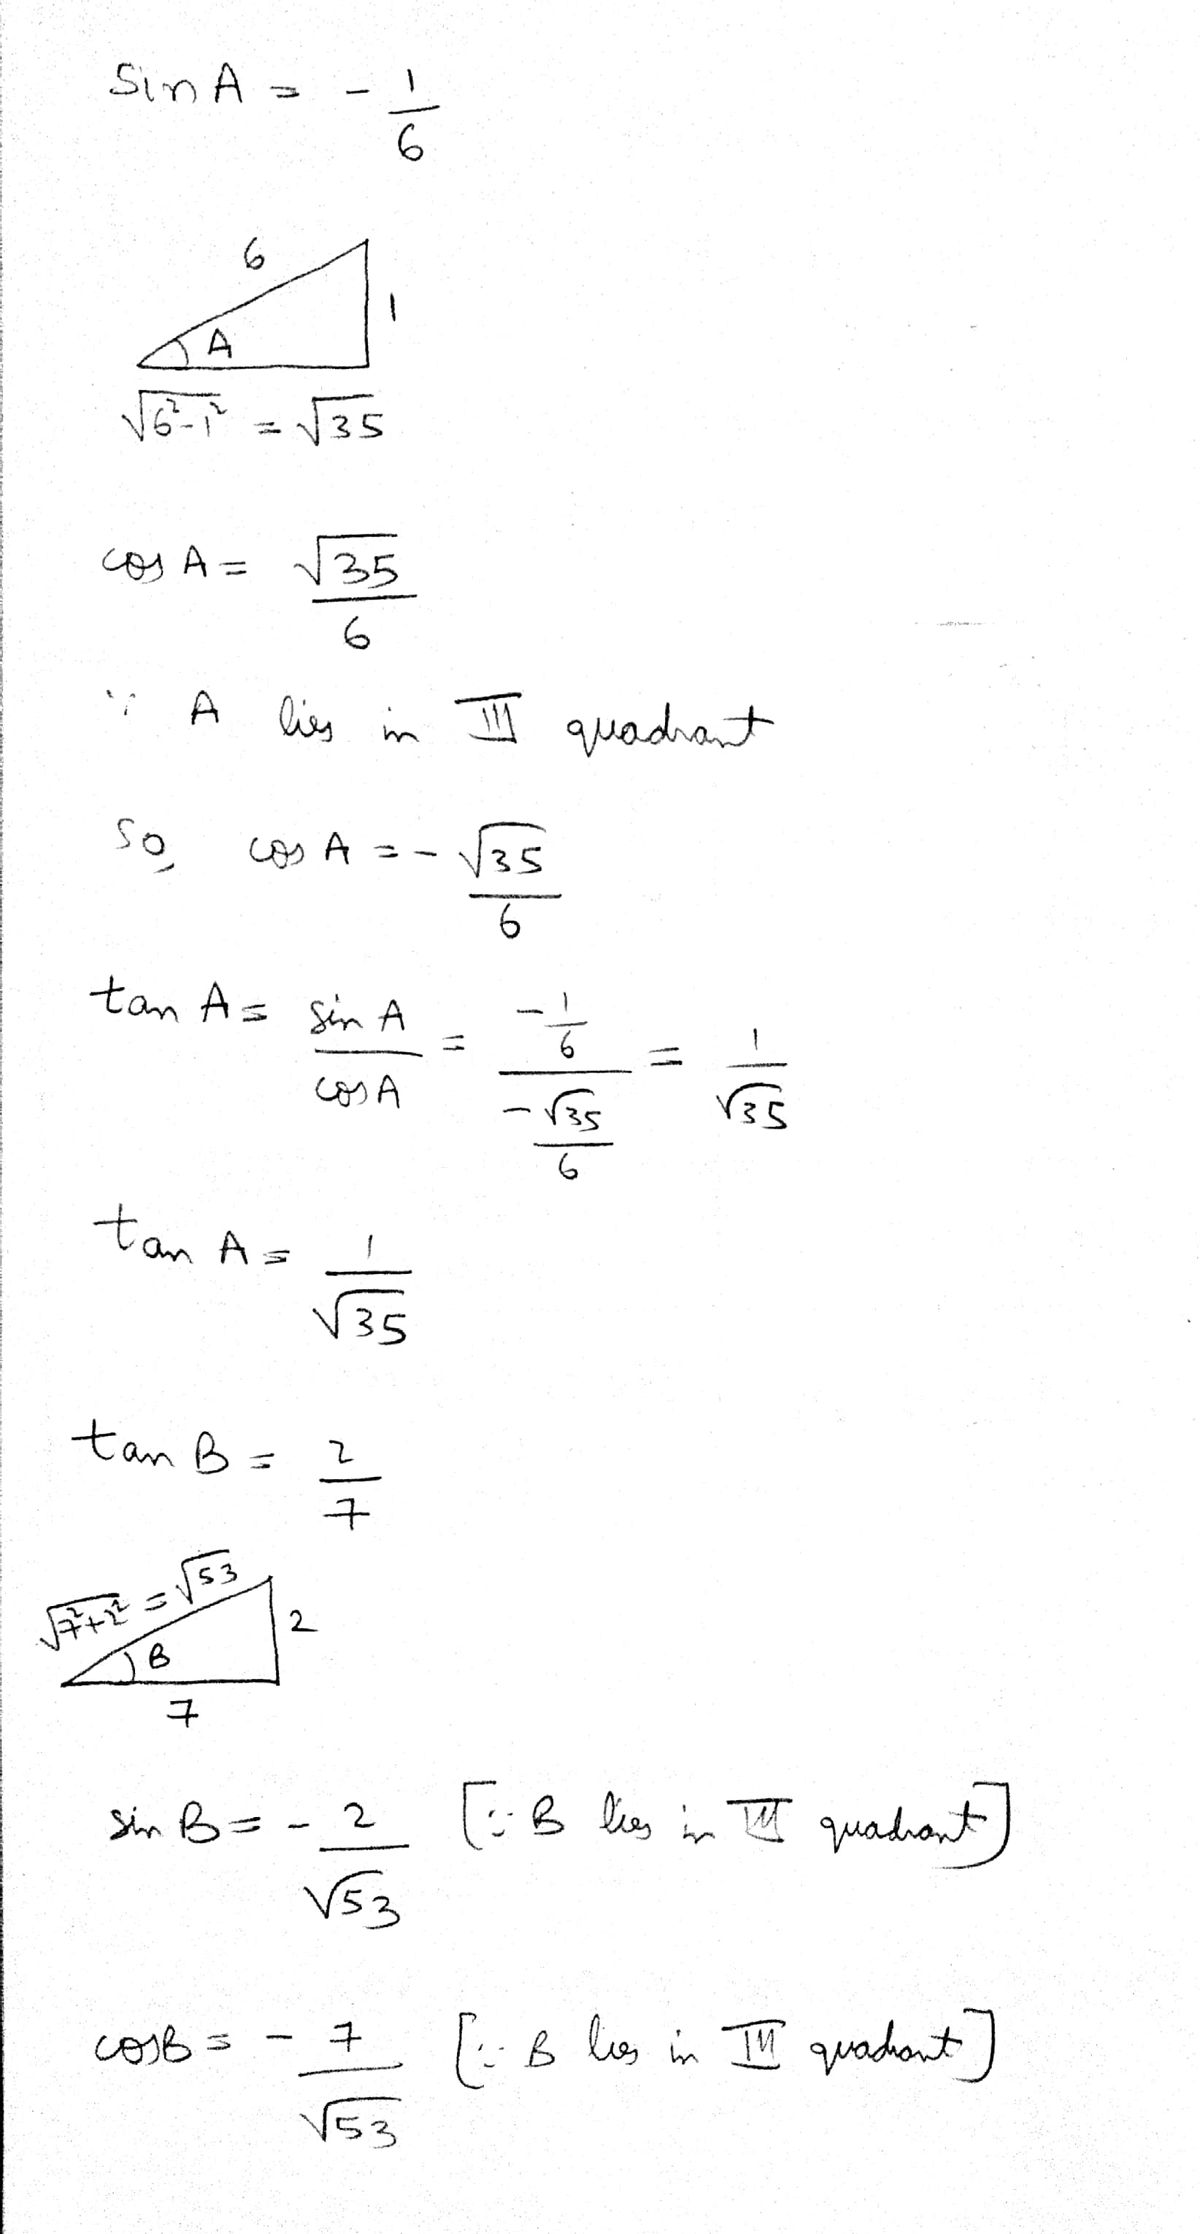 sin A = - 1/6
6
1
A
√6²-1² = √35
cos A = √35/6
∵ A lies in III quadrant
So, cos A = - √35/6
tan A = sin A/cos A = (-1/6)/(-√35/6) = 1/√35
tan A = 1/√35
tan B = 2/7
√7²+2² = √53
2
B
7
sin B = - 2/√53 [∵ B lies in III quadrant]
cos B = - 7/√53 [∵ B lies in III quadrant]